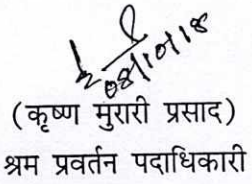 08/10/18
(कृष्ण मुरारी प्रसाद)
श्रम प्रवर्तन पदाधिकारी